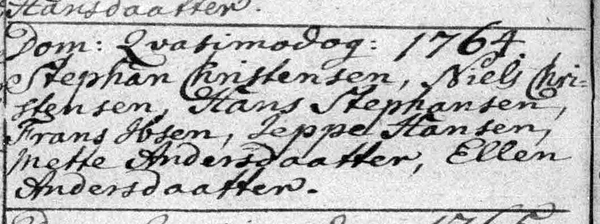 Hansdaatter.
Dom: Qvasimodog: 1764.
Stephan Christensen, Niels Chri-
stensen, Hans Stephansen,
Frans Ibsen, Jeppe Hansen,
Mette Andersdaatter, Ellen
Andersdaatter.